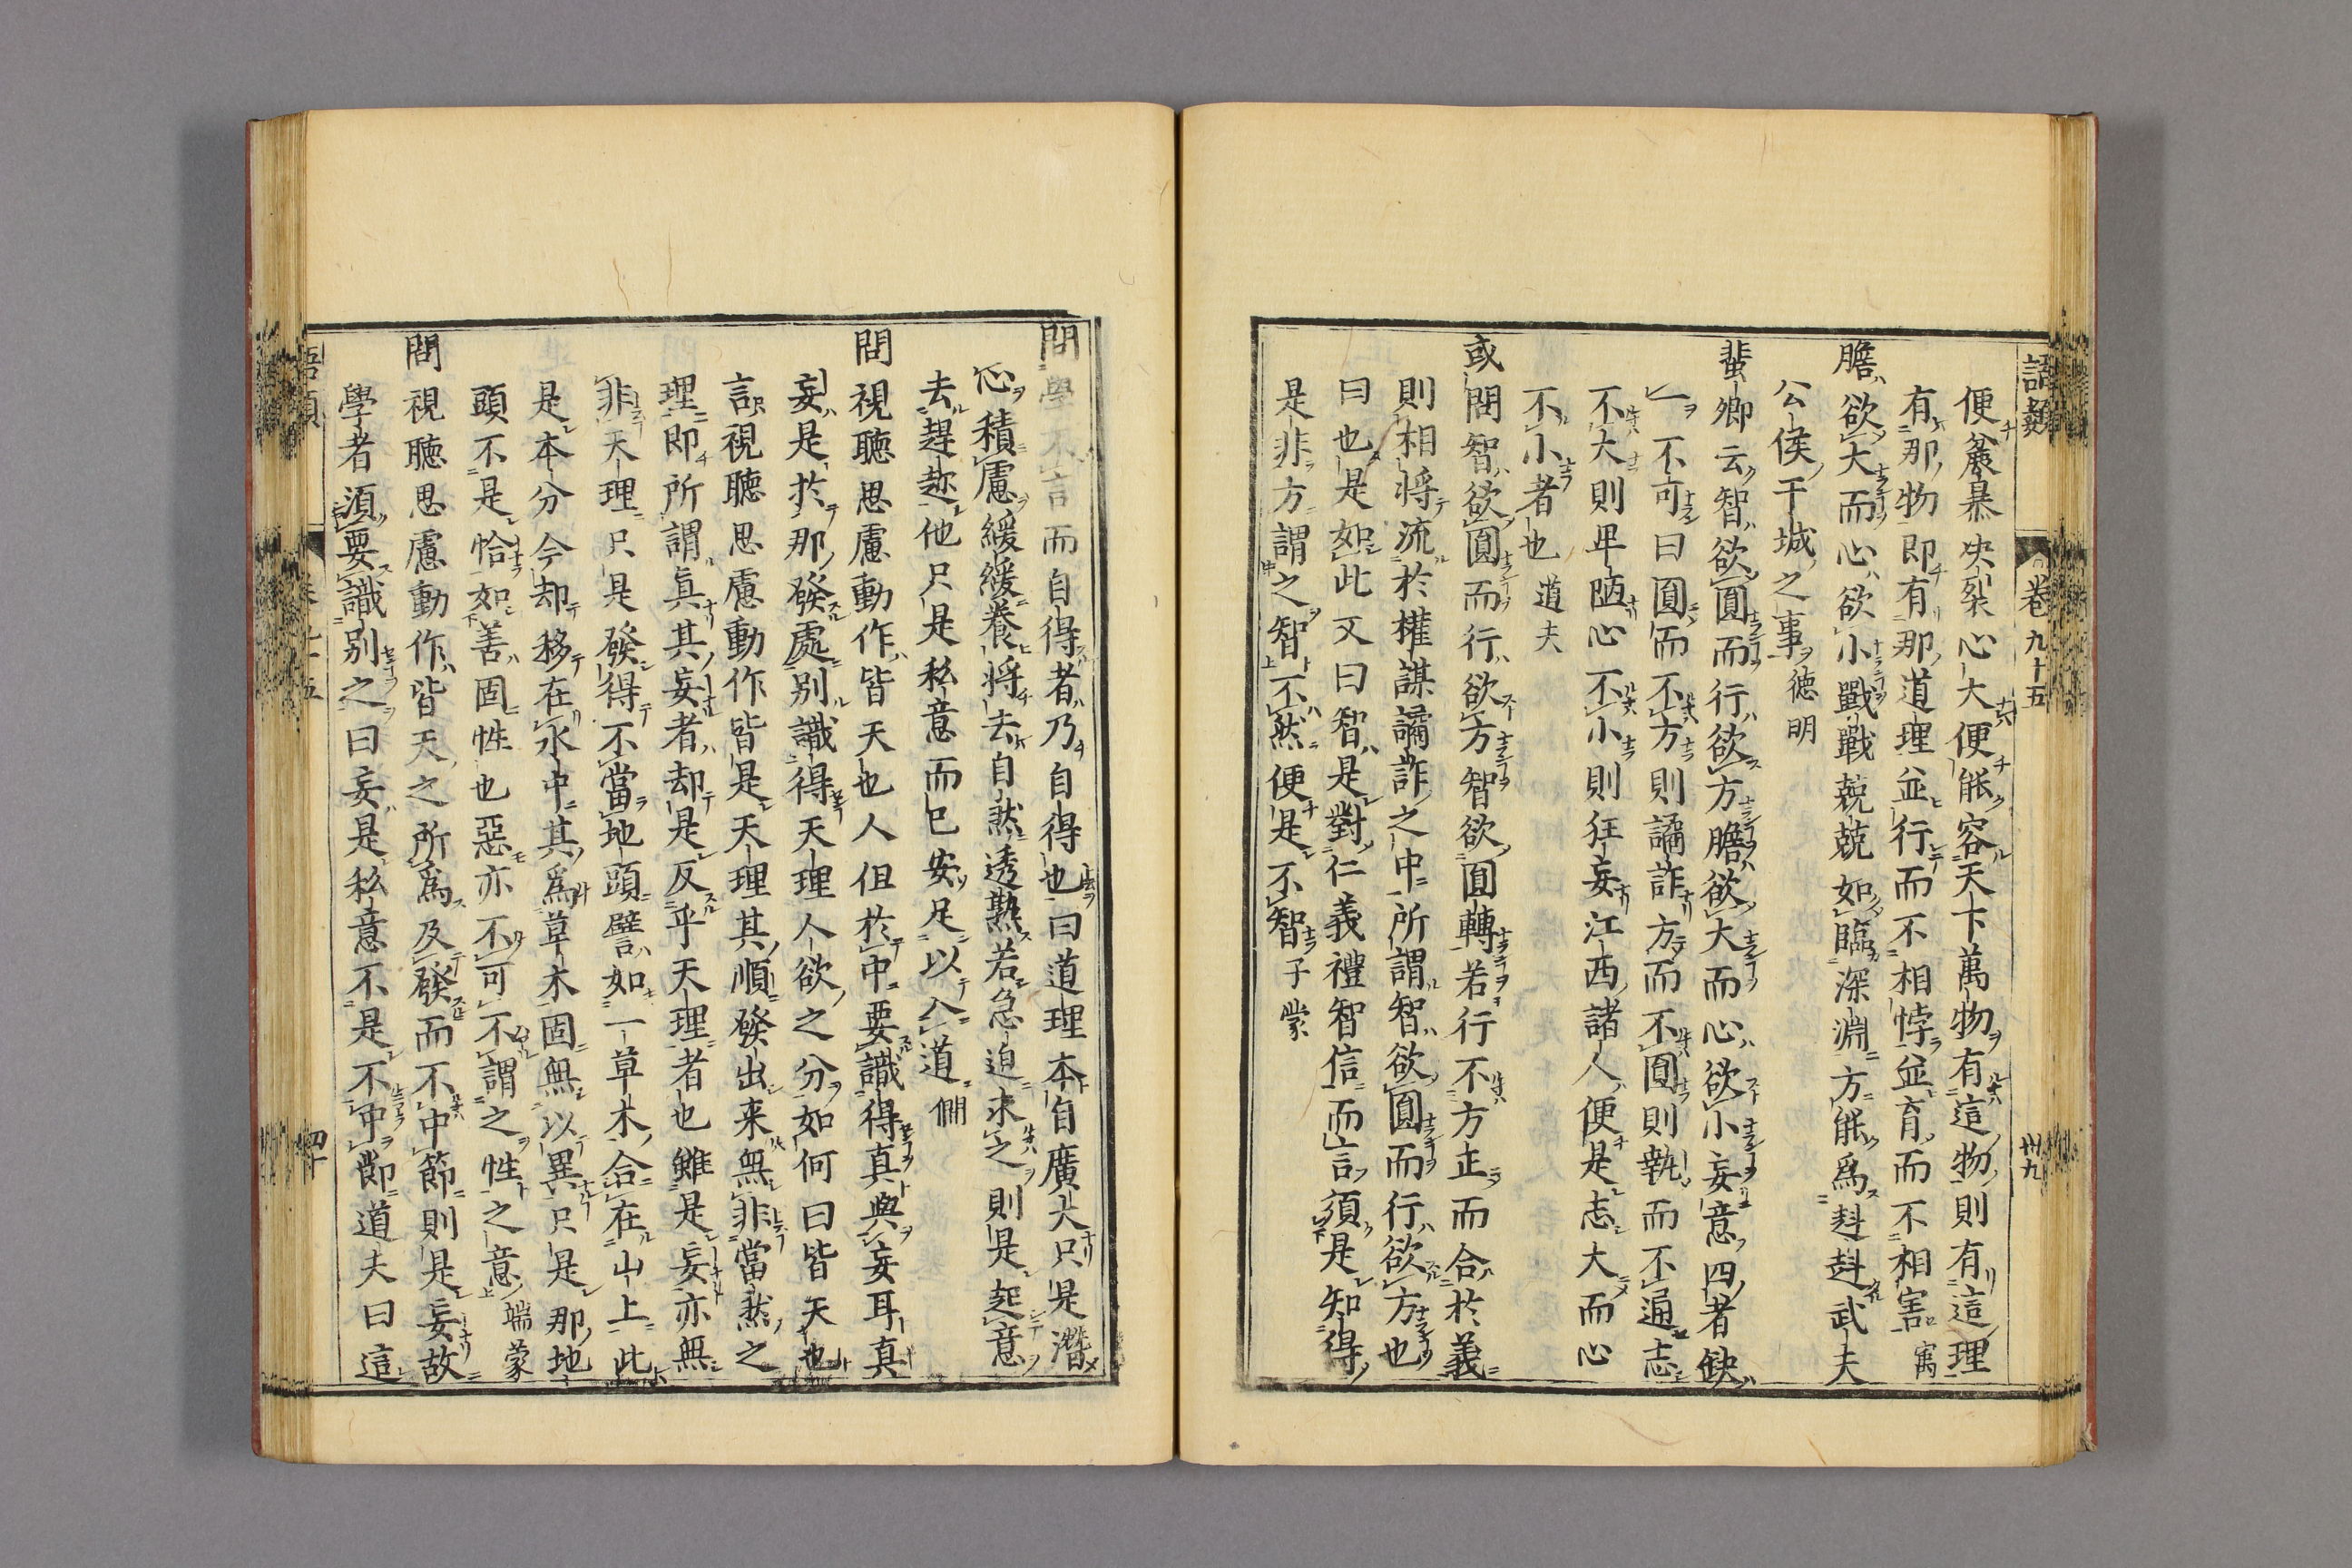 語類 卷九十五 卅九
便麄暴决裂心大便能容天下萬物有這物則有這理
有那物即有那道理並行而不相悖並育而不相害㝢
膽欲大而心欲小戰戰兢兢如臨深淵方能爲赳赳武夫
公侯干城之事德明
蜚卿云智欲圓而行欲方膽欲大而心欲小妄意四者缺
一不可曰圓而不方則譎詐方而不圓則執而不通志
不大則卑陋心不小則狂妄江西諸人便是志大而心
不小者也道夫
或問智欲圓而行欲方智欲圓轉若行不方正而合於義
則相將流於權謀譎詐之中所謂智欲圓而行欲方也
曰也是如此又曰智是對仁義禮智信而言須是知得
是非方謂之智不然便是不智子蒙
問學不言而自得者乃自得也曰道理本自廣大只是潛
心積慮緩緩養將去自然透熟若急迫求之則是起意
去趕趂他只是私意而已安足以入道僩
問視聽思慮動作皆天也人但於中要識得真與妄耳真
妄是於那發處別識得天理人欲之分如何曰皆天也
言視聽思慮動作皆是天理其順發出来無非當然之
理即所謂真其妄者却是反乎天理者也雖是妄亦無
非天理只是發得不當地頭譬如一草木合在山上此
是本分今却移在水中其爲草木固無以異只是那地
頭不是恰如善固性也惡亦不可不謂之性之意端蒙
問視聽思慮動作皆天之所爲及發而不中節則是妄故
學者須要識別之曰妄是私意不是不中節道夫曰這
語類 卷九十五 四十